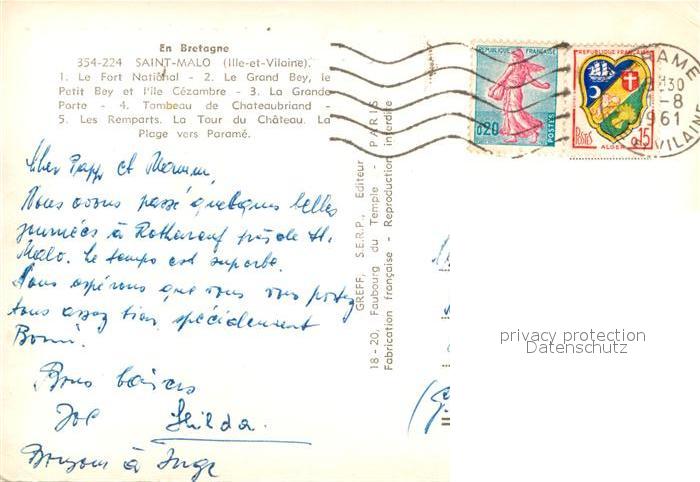 En Bretagne
354-224 SAINT-MALO (Ille-et-Vilaine).
1. Le Fort National - 2. Le Grand Bey, le
Petit Bey et l'île Cézambre - 3. La Grande
Porte - 4. Tombeau de Chateaubriand -
5. Les Remparts. La Tour du Château. La
Plage vers Paramé.
Cher Papy et Mammi,
Nous avons passé quelques belles
journées à Rotheneuf près de St.
Malo. Le temps est superbe.
Nous espérons que vous vous portez
tous assez bien, spécialement
Bomi.
Bons baisers
Joe Hilda.
Bonjour à Inge
GREFF, S.E.R.P., Editeur
18-20, Faubourg du Temple - PARIS
Fabrication française - Reproduction interdite
REPUBLIQUE FRANÇAISE
0,20
POSTES
REPUBLIQUE FRANÇAISE
POSTES
ALGER
0,15
PARAME
30
-8
1961
VILAINE
privacy protection
Datenschutz